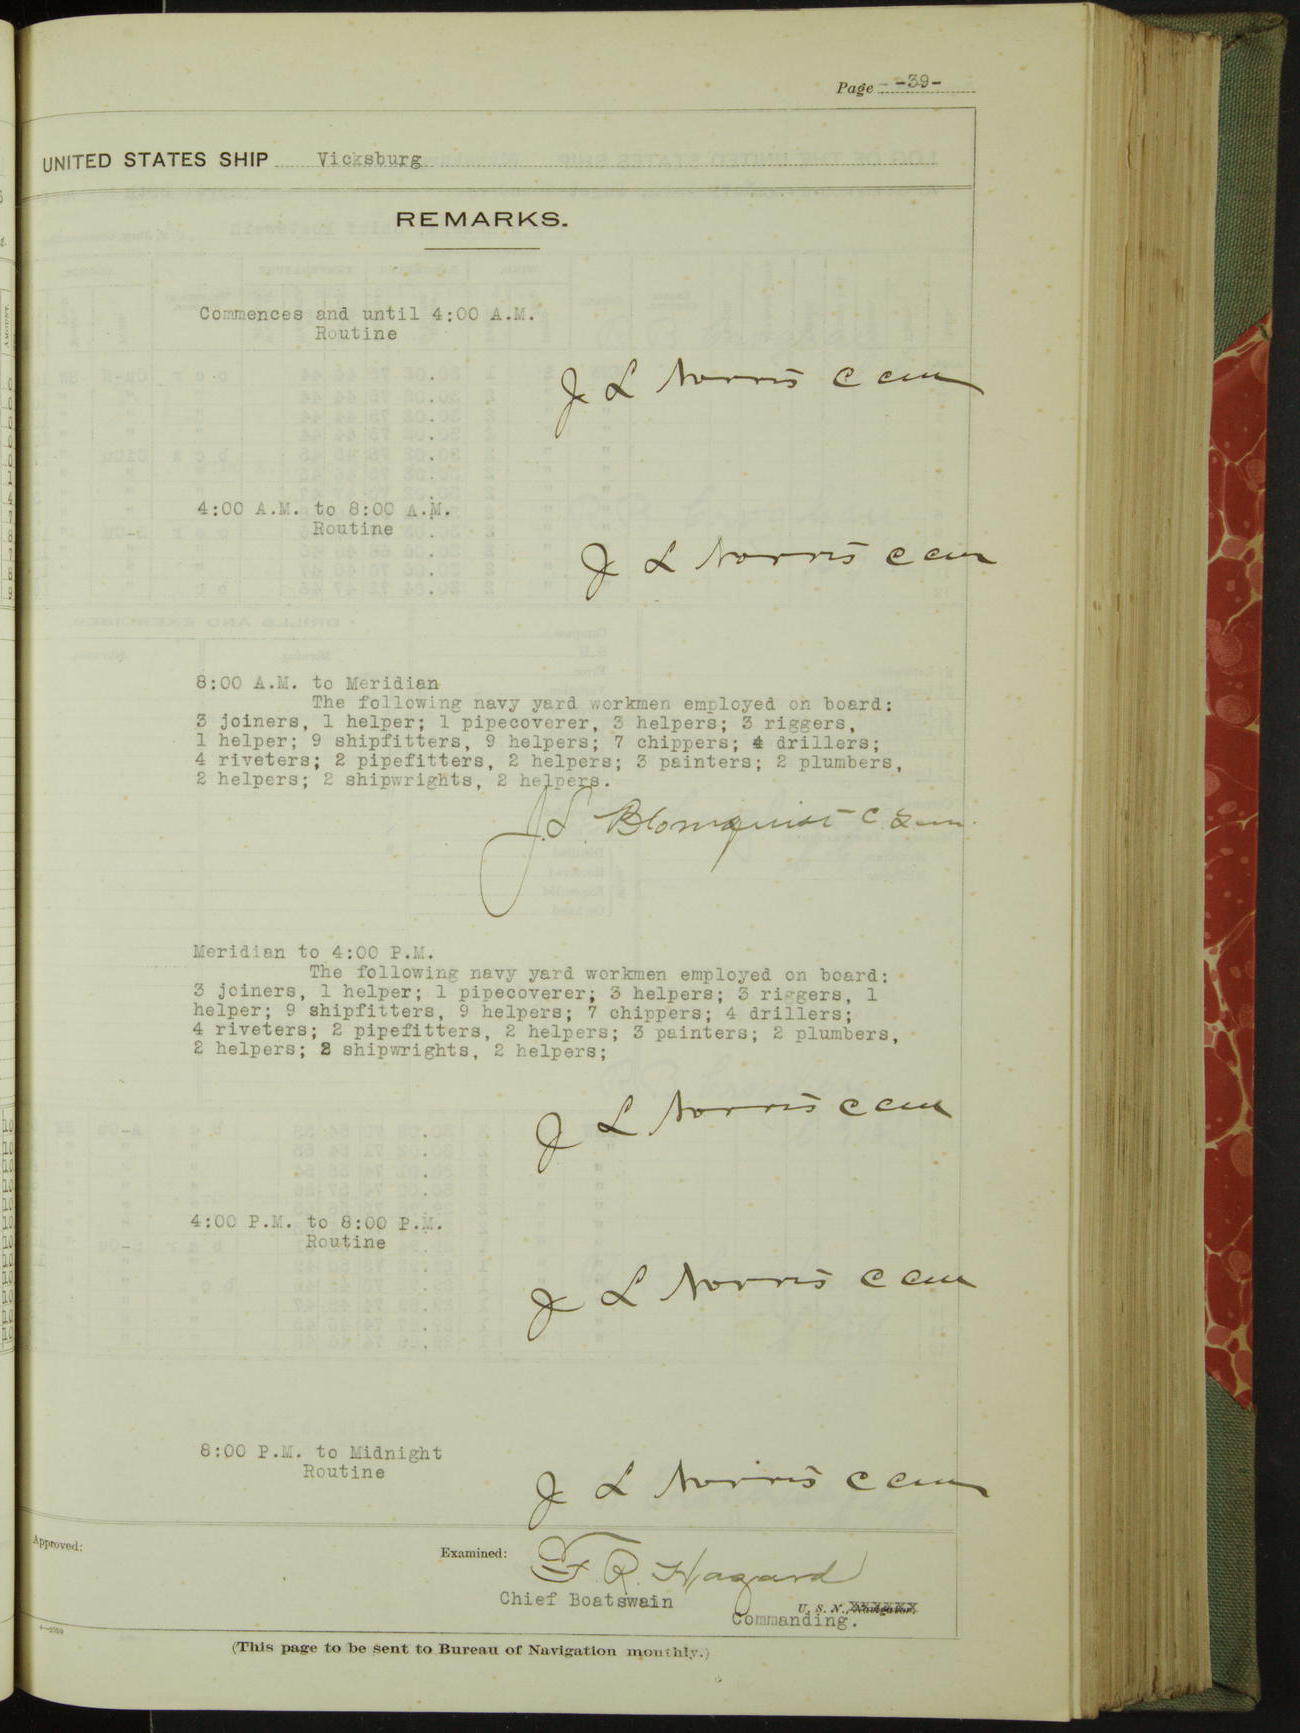 Page -39-
UNITED STATES SHIP Vicksburg
REMARKS.
Commences and until 4:00 A.M.
Routine
J L Norris C CM
4:00 A.M. to 8:00 A.M.
Routine
J L Norris C CM
8:00 A.M. to Meridian
The following navy yard workmen employed on board:
3 joiners, 1 helper; 1 pipecoverer, 3 helpers; 3 riggers,
1 helper; 9 shipfitters, 9 helpers; 7 chippers; 4 drillers;
4 riveters; 2 pipefitters, 2 helpers; 3 painters; 2 plumbers,
2 helpers; 2 shipwrights, 2 helpers.
J.L. Blomquist C
Meridian to 4:00 P.M.
The following navy yard workmen employed on board:
3 joiners, 1 helper; 1 pipecoverer; 3 helpers; 3 riggers, 1
helper; 9 shipfitters, 9 helpers; 7 chippers; 4 drillers;
4 riveters; 2 pipefitters, 2 helpers; 3 painters; 2 plumbers,
2 helpers; 2 shipwrights, 2 helpers;
J L Norris C CM
4:00 P.M. to 8:00 P.M.
Routine
J L Norris C CM
8:00 P.M. to Midnight
Routine
J L Norris C CM
Approved:
Examined: F R Hazard
Chief Boatswain
U. S. N., Navigator.
Commanding.
(This page to be sent to Bureau of Navigation monthly.)